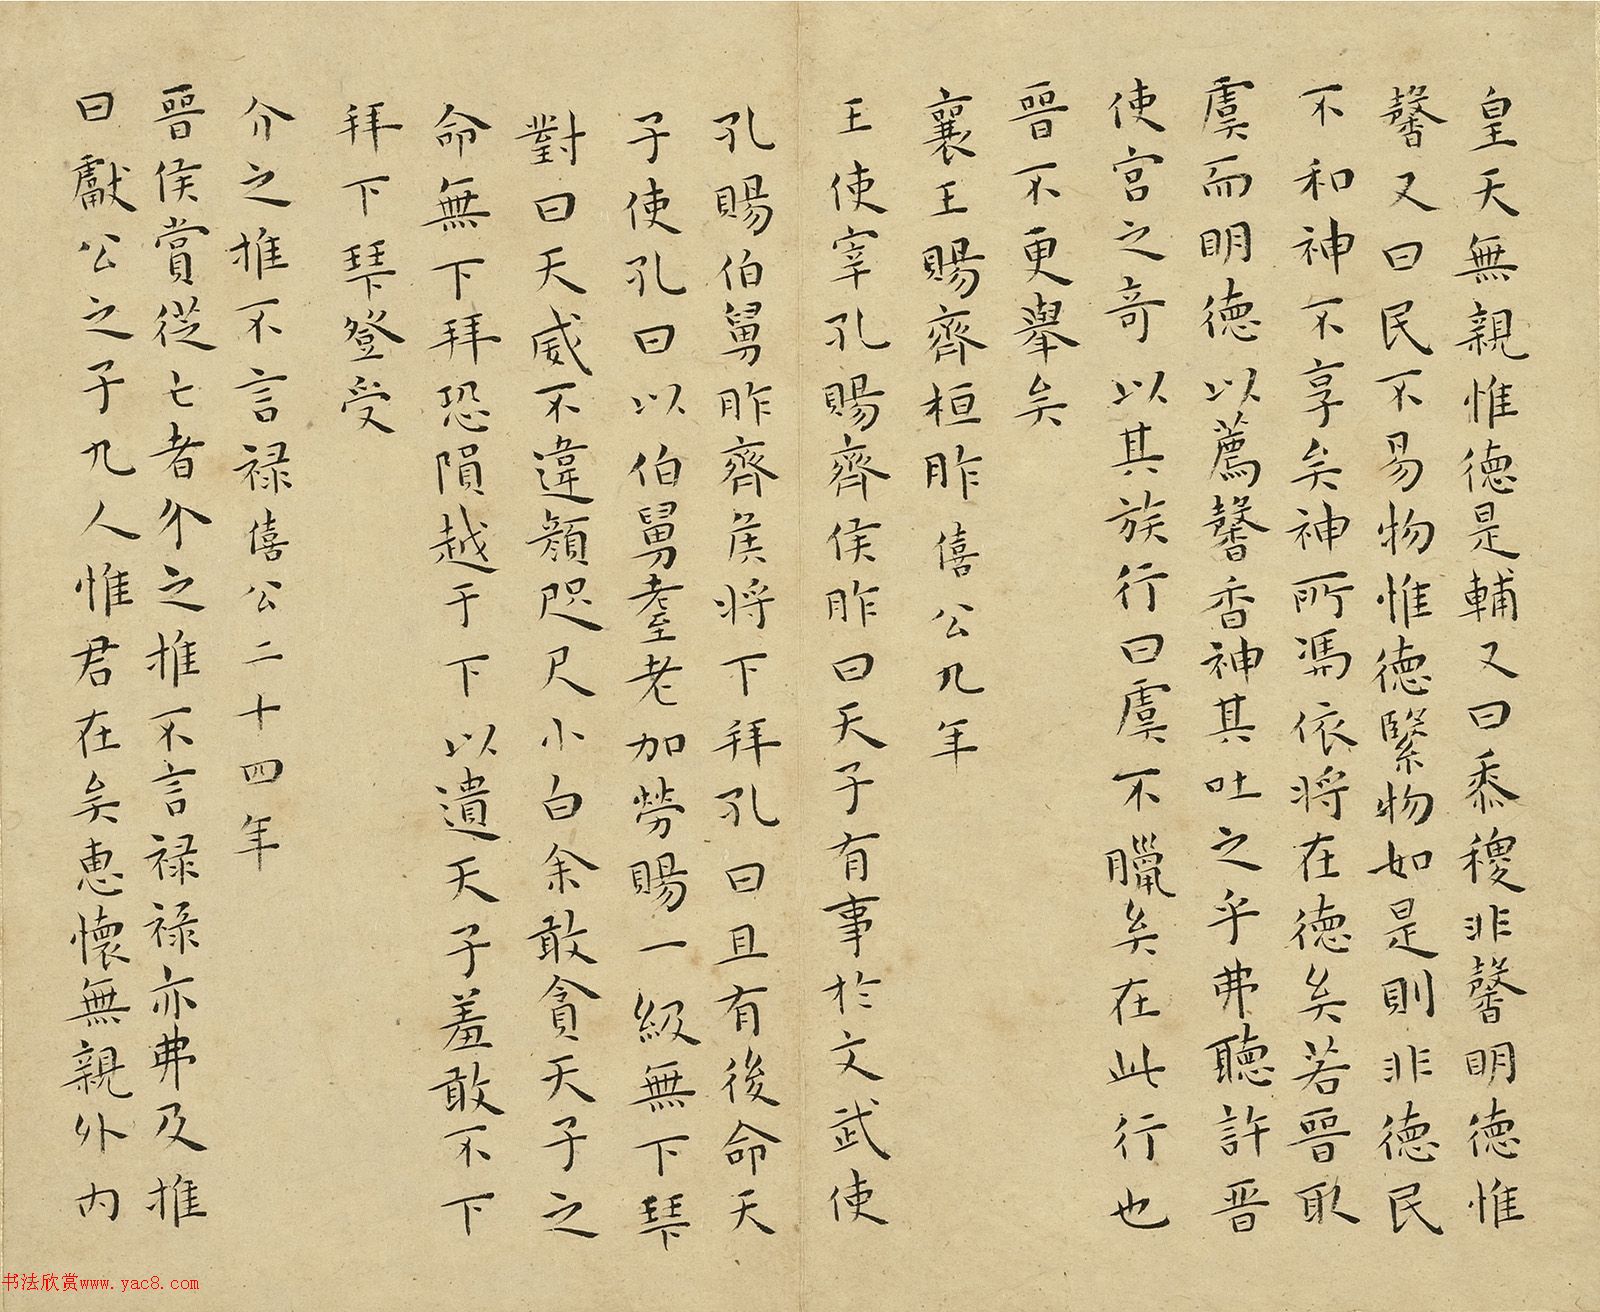 皇天無親惟德是輔又曰黍稷非馨明德惟
馨又曰民不易物惟德繄物如是則非德民
不和神不享矣神所馮依將在德矣若晉取
虞而明德以薦馨香神其吐之乎弗聽許晉
使宮之奇以其族行曰虞不臘矣在此行也
晉不更舉矣
襄王賜齊桓胙 僖公九年
王使宰孔賜齊侯胙曰天子有事於文武使
孔賜伯舅胙齊侯將下拜孔曰且有後命天
子使孔曰以伯舅耋老加勞賜一級無下拜
對曰天威不違顏咫尺小白余敢貪天子之
命無下拜恐隕越于下以遺天子羞敢不下
拜下拜登受
介之推不言祿僖公二十四年
晉侯賞從亡者介之推不言祿祿亦弗及推
曰獻公之子九人惟君在矣惠懷無親外內
书法欣赏www.yac8.com